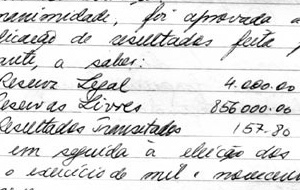 nanimidade, foi aprovada a
licação de resultados feita p
ante, a saber:
Reserva Legal 4.000.00
Reservas Livres 856000.00
Resultados Transitados 157.80
em seguida à eleição dos
o exercício de mil e novecent